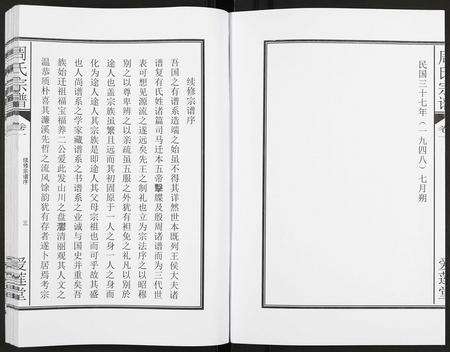 民国三十七年（一九四八）七月朔
续修宗谱序
吾国之有谱系造端之始虽不得其详然世本既列王侯大夫诸
谱复有氏姓诸篇司马迁本五帝繫牒及殷周诸谱而为三代世
表可想见源流之遂远矣先王之制礼也立为宗法序之以昭穆
别之以尊卑辨之以亲疏虽五服之外犹有袒免之礼凡以别於
途人也盖宗族虽繁且远而其初固原于一人之身一人之身而
化为途人途人其宗族是即途人其父母宗祖也而可乎故其盛
也人尚谱系之学家藏谱系之书谱系之业诚与国史并重矣吾
族始迁祖福宝福养二公爱此发山川之盘清丽观其人文之
温恭琐朴喜其濂溪先哲之流风馀韵犹有存者遂卜居焉考宗
周氏宗谱
卷
续修宗谱序
三
爱莲堂
周氏宗谱
卷
爱莲堂